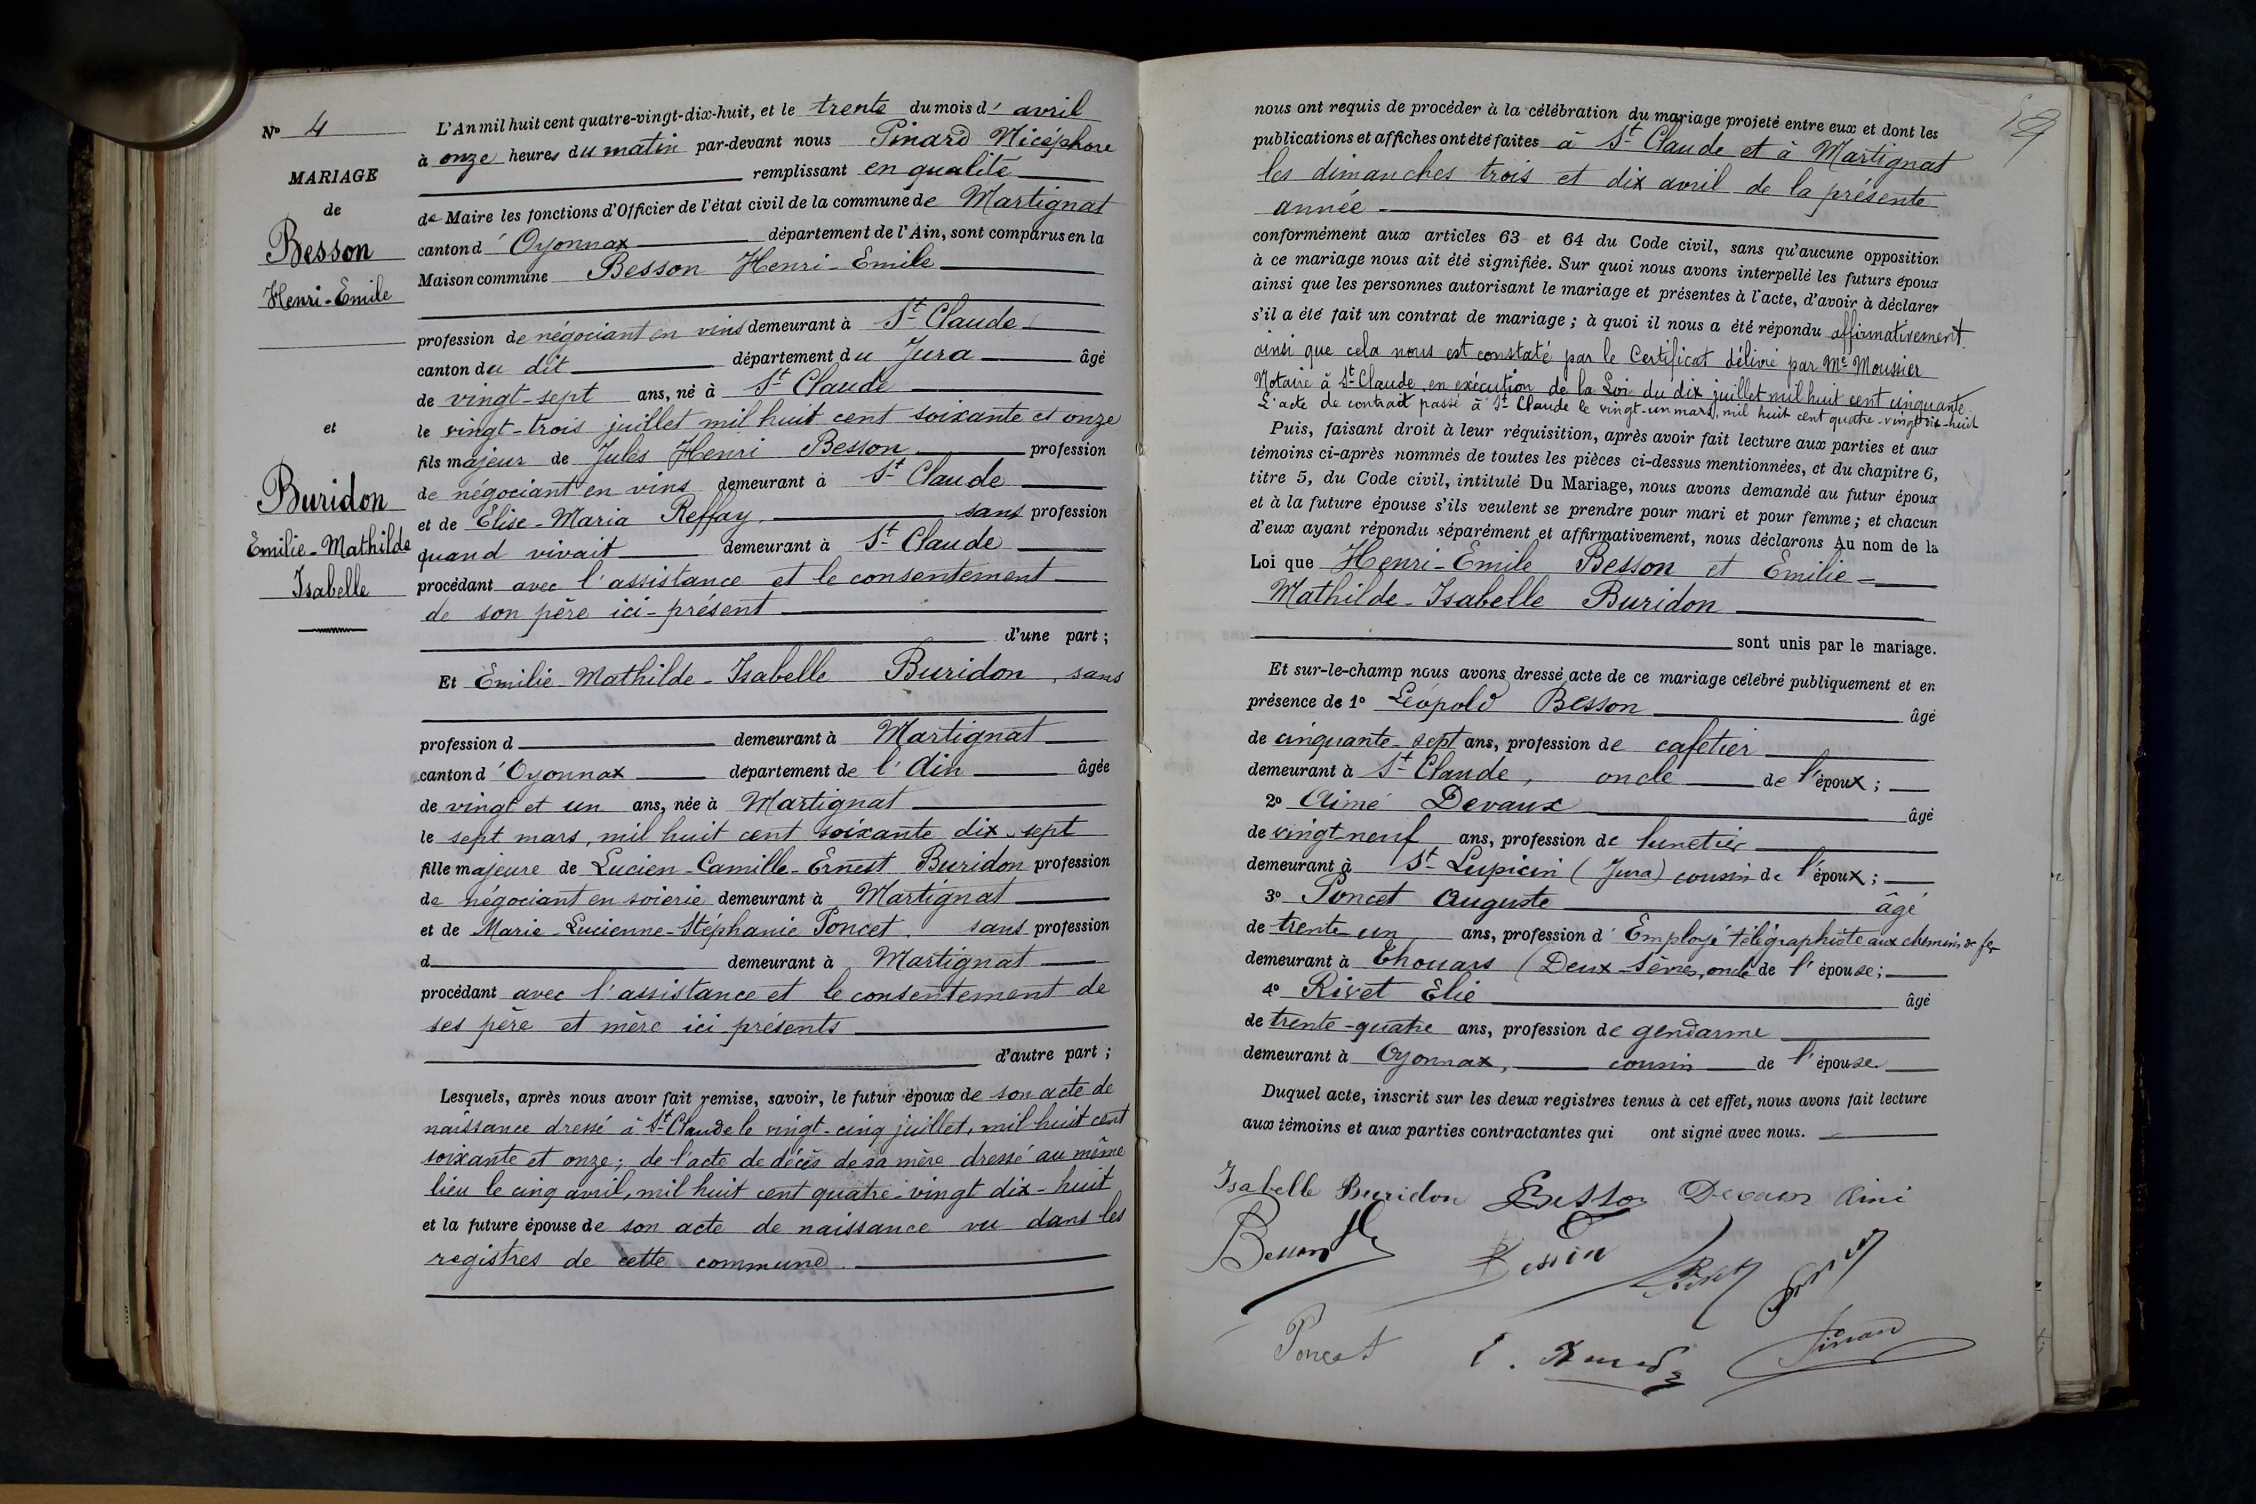 Nº 4
MARIAGE
de
Besson
Henri-Emile
et
Buridon
Emilie-Mathilde
Isabelle
L'An mil huit cent quatre-vingt-dix-huit, et le trente du mois d'avril
à onze heures du matin par-devant nous Pinard Nicéphore
remplissant en qualité
de Maire les fonctions d'Officier de l'état civil de la commune de Martignat
canton d'Oyonnax département de l'Ain, sont comparus en la
Maison commune Besson Henri-Emile
profession de négociant en vins demeurant à St Claude
canton du dit département du Jura âgé
de vingt-sept ans, né à St Claude
le vingt-trois juillet mil huit cent soixante et onze
fils majeur de Jules Henri Besson profession
de négociant en vins demeurant à St Claude
et de Elise-Maria Reffay, sans profession
quand vivait demeurant à St Claude
procédant avec l'assistance et le consentement
de son père ici-présent
d'une part ;
Et Emilie Mathilde-Isabelle Buridon, sans
profession d demeurant à Martignat
canton d'Oyonnax département de l'Ain âgée
de vingt et un ans, née à Martignat
le sept mars, mil huit cent soixante dix-sept
fille majeure de Lucien-Camille-Ernest Buridon profession
de négociant en soierie demeurant à Martignat
et de Marie-Lucienne-Stéphanie Poncet, sans profession
d demeurant à Martignat
procédant avec l'assistance et le consentement de
ses père et mère ici présents
d'autre part ;
Lesquels, après nous avoir fait remise, savoir, le futur époux de son acte de
naissance dressé à St Claude le vingt-cinq juillet, mil huit cent
soixante et onze; de l'acte de décès de sa mère dressé au même
lieu le cinq avril, mil huit cent quatre-vingt dix-huit
et la future épouse de son acte de naissance vu dans les
registres de cette commune.
nous ont requis de procéder à la célébration du mariage projeté entre eux et dont les
publications et affiches ont été faites à St Claude et à Martignat
les dimanches trois et dix avril de la présente
année
conformément aux articles 63 et 64 du Code civil, sans qu'aucune opposition
à ce mariage nous ait été signifiée. Sur quoi nous avons interpellé les futurs époux
ainsi que les personnes autorisant le mariage et présentes à l'acte, d'avoir à déclarer
s'il a été fait un contrat de mariage ; à quoi il nous a été répondu affirmativement
ainsi que cela nous est constaté par le Certificat délivré par Me Moussier
Notaire à St Claude en exécution de la Loi du dix juillet mil huit cent cinquante.
L'acte de contrat passé à St Claude le vingt-un mars, mil huit cent quatre-vingt dix-huit
Puis, faisant droit à leur réquisition, après avoir fait lecture aux parties et aux
témoins ci-après nommés de toutes les pièces ci-dessus mentionnées, et du chapitre 6,
titre 5, du Code civil, intitulé Du Mariage, nous avons demandé au futur époux
et à la future épouse s'ils veulent se prendre pour mari et pour femme ; et chacun
d'eux ayant répondu séparément et affirmativement, nous déclarons Au nom de la
Loi que Henri-Emile Besson et Emilie-
Mathilde-Isabelle Buridon
sont unis par le mariage.
Et sur-le-champ nous avons dressé acte de ce mariage célébré publiquement et en
présence de 1º Léopold Besson âgé
de cinquante-sept ans, profession de cafetier
demeurant à St Claude, oncle de l'époux ;
2º Aimé Devaux âgé
de vingt-neuf ans, profession de lunetier
demeurant à St Lupicin (Jura) cousin de l'époux ;
3º Poncet Auguste âgé
de trente-un ans, profession d'Employé télégraphiste aux chemins de fer
demeurant à Thouars (Deux-Sèvres, oncle de l'épouse ;
4º Rivet Elie âgé
de trente-quatre ans, profession de gendarme
demeurant à Oyonnax, cousin de l'épouse
Duquel acte, inscrit sur les deux registres tenus à cet effet, nous avons fait lecture
aux témoins et aux parties contractantes qui ont signé avec nous.
Isabelle Buridon Besson Devaux Aimé
Besson
Rivet
Poncet
Pinard